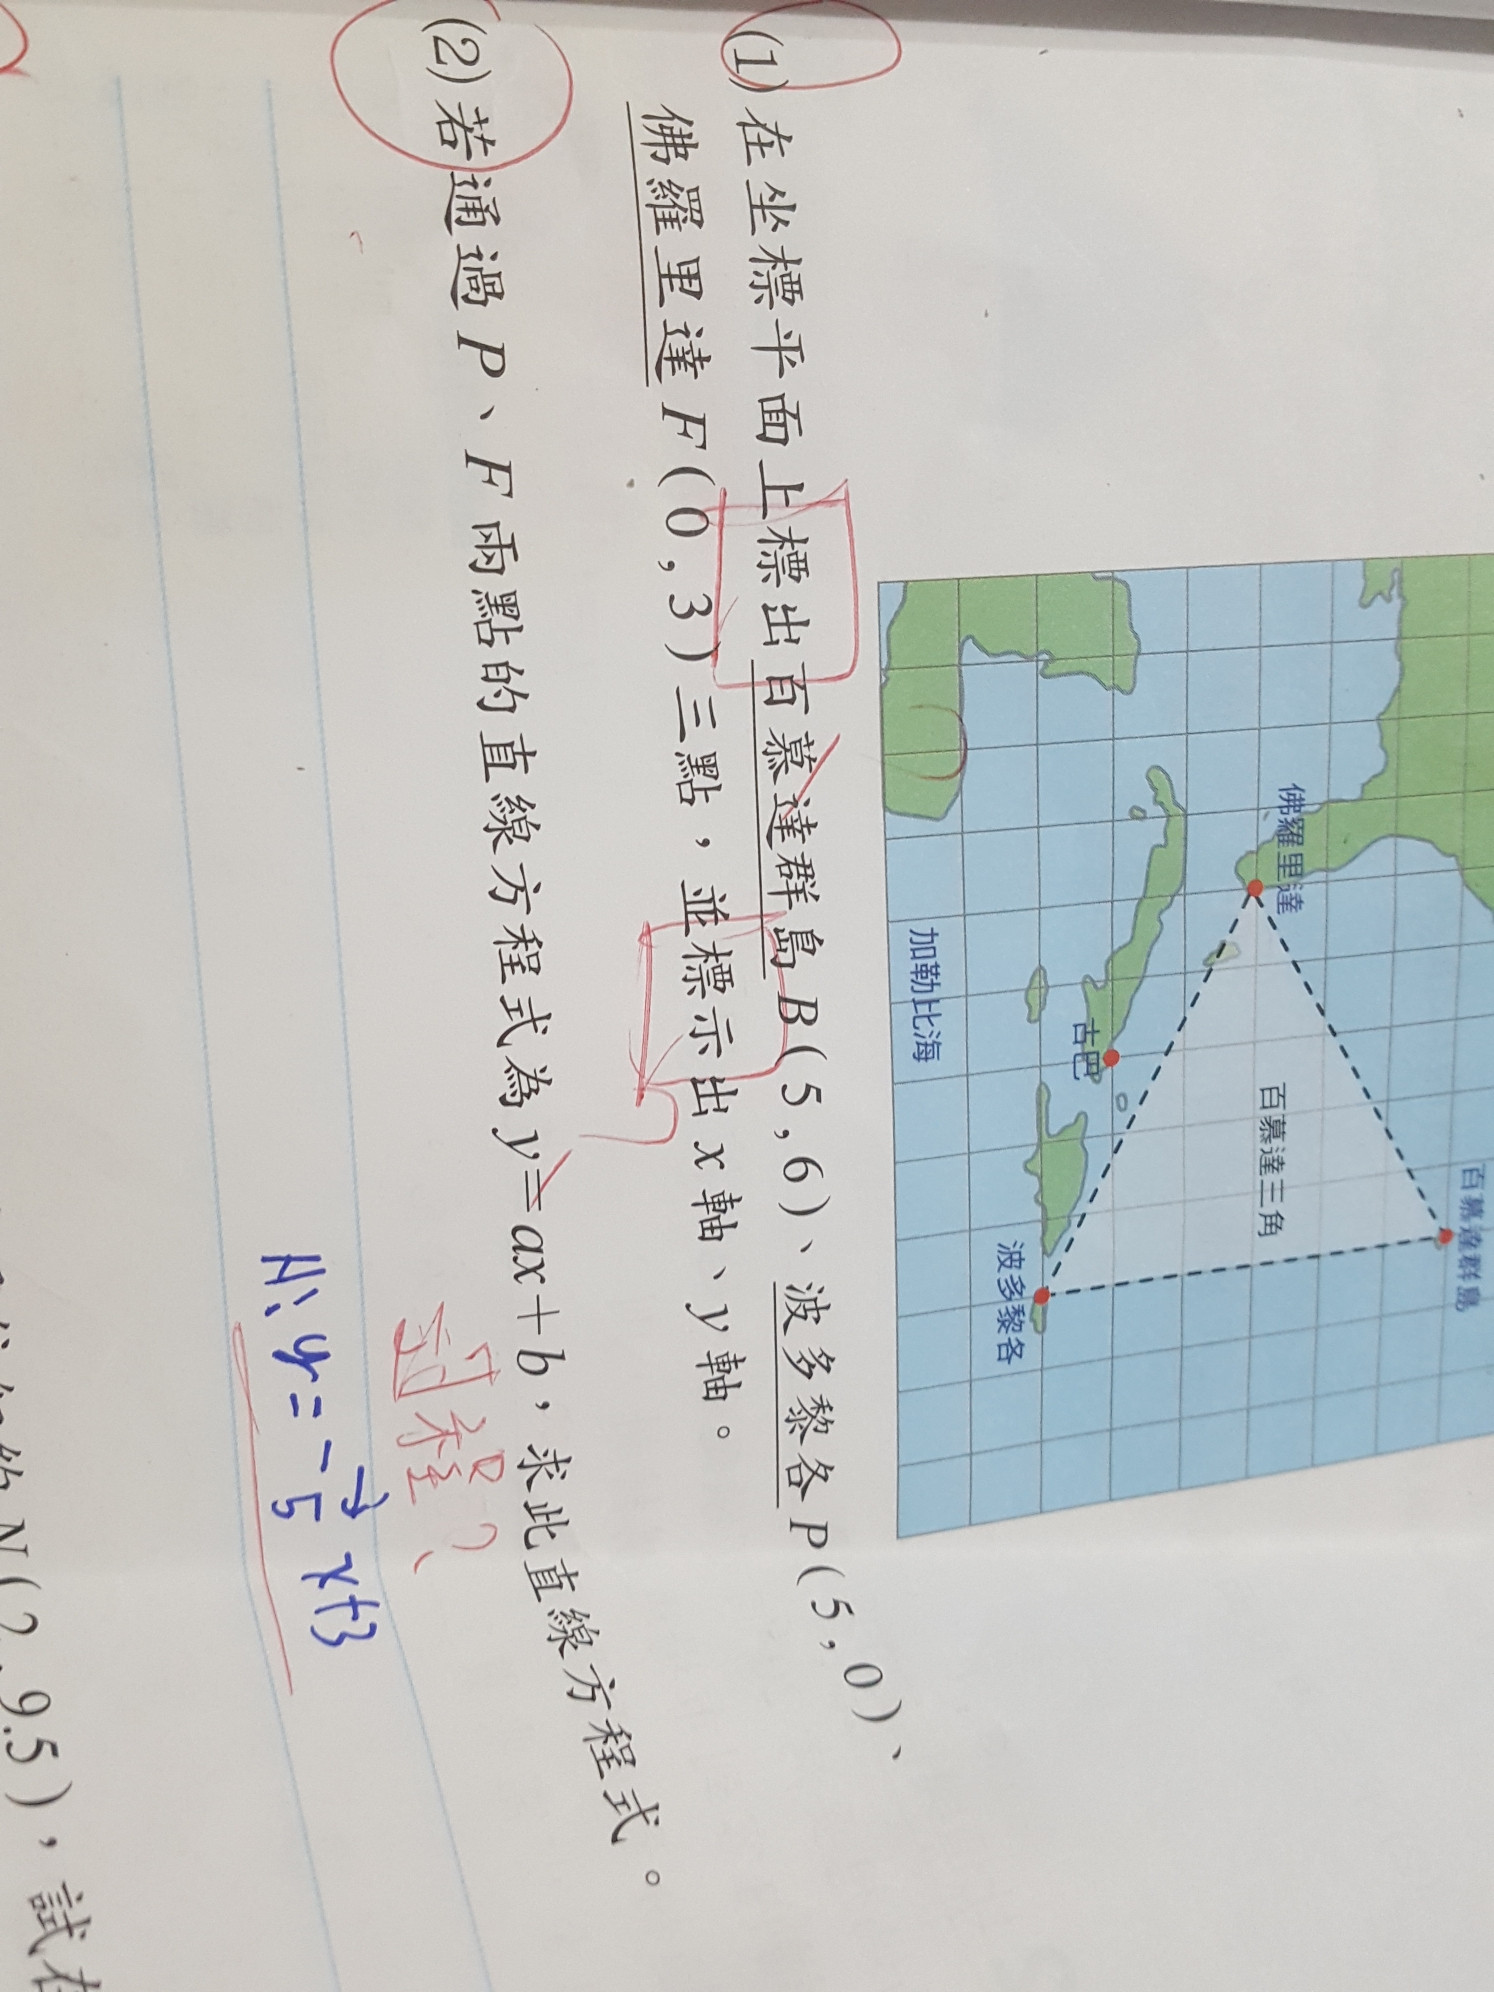 百慕達群島
佛羅里達
百慕達三角
古巴
波多黎各
加勒比海
(1) 在坐標平面上標出百慕達群島 B(5,6)、波多黎各 P(5,0)、
佛羅里達 F(0,3)三點，並標示出 x 軸、y 軸。
(2) 若通過 P、F 兩點的直線方程式為 y=ax+b，求此直線方程式。
程?
A: y = -
5
x+3
N(2,9.5)，試在